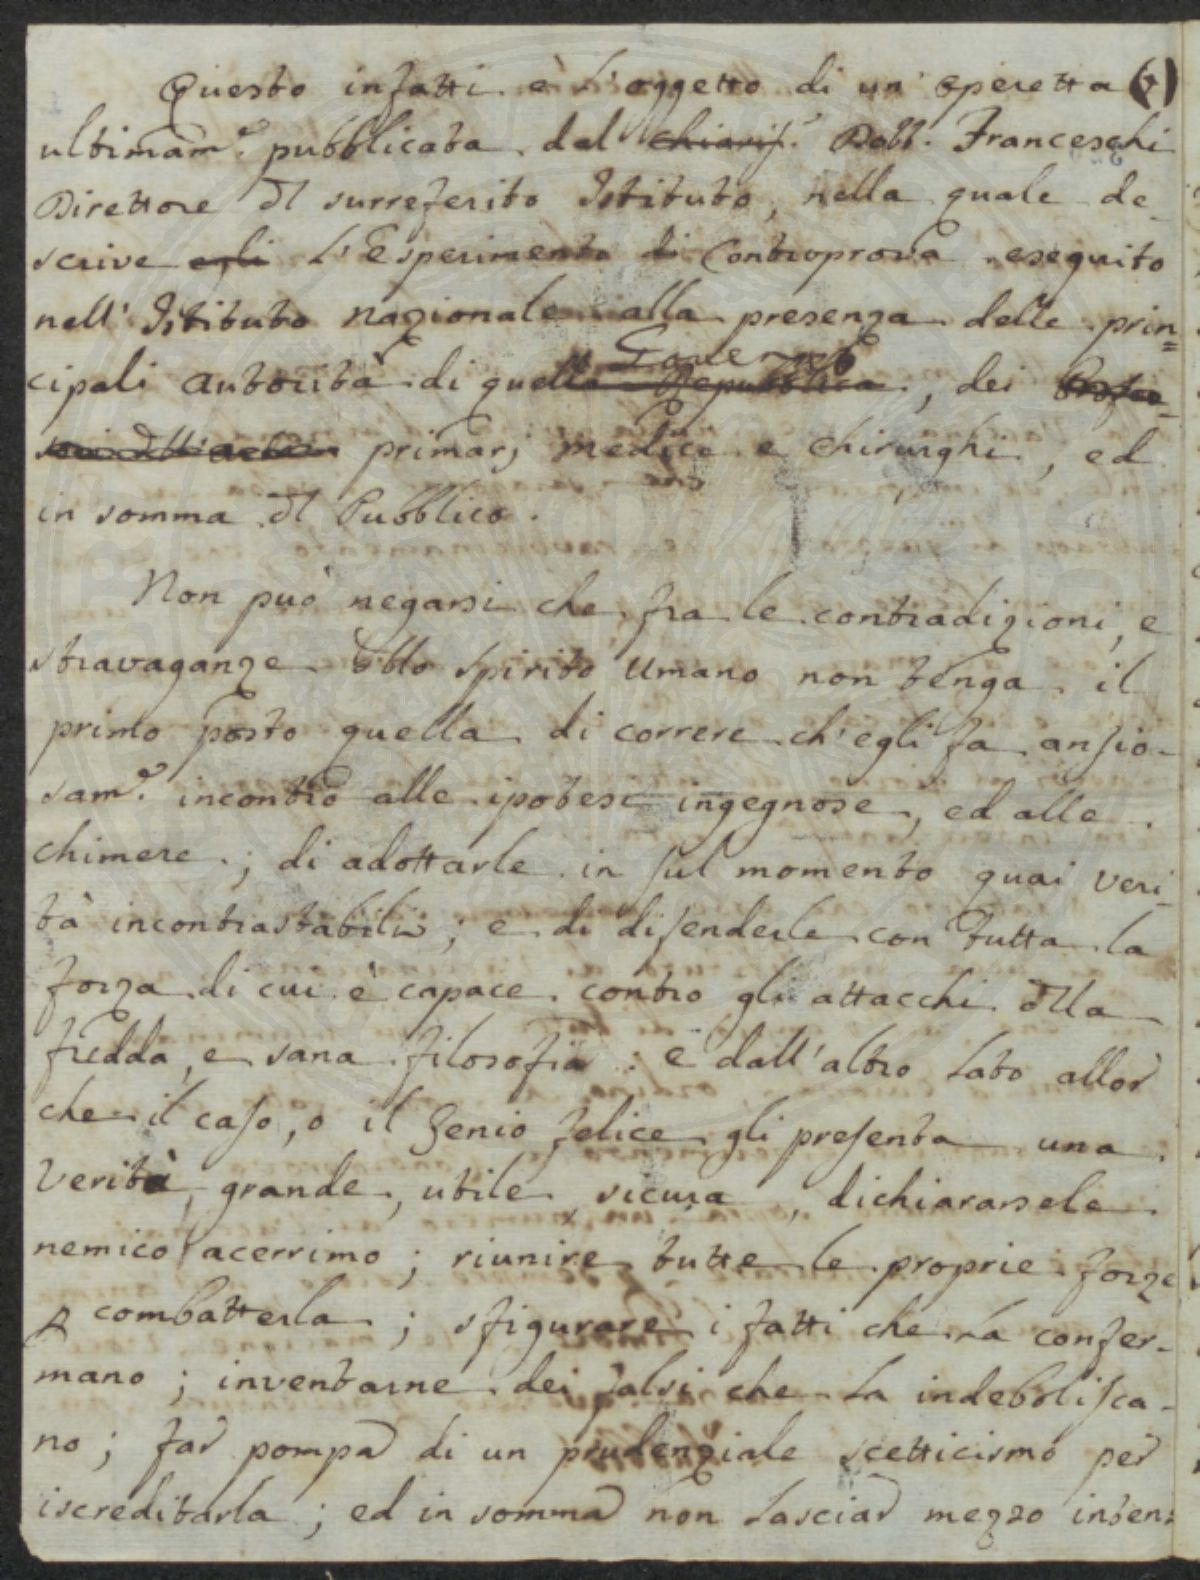 Questo infatti è l'oggetto di un' operetta (*)
ultimam.e pubblicata dal chiaris.o Dott. Franceschi
Direttore dl surreferito Istituto, nella quale de-
scrive egli l'Esperimento di Controprova eseguito
nell'Istituto nazionale alla presenza delle prin=
Governo
cipali autorità di quella Repubblica, dei Profes-
sori dll'arte primarj medici e chirurghi, ed
in somma dl Pubblico.
Non può negarsi che fra le contradizioni, e
stravaganze dllo spirito umano non tenga il
primo posto quella di correre ch'egli fa ansio-
sam.e incontro alle ipotesi ingegnose, ed alle
chimere; di adottarle in sul momento quai veri-
tà incontrastabili; e di difenderle con tutta la
forza di cui è capace contro gli attacchi dlla
fredda, e sana filosofia: e dall'altro lato allor
che il caso, o il Genio felice gli presenta una
Verità, grande, utile, sicura, dichiararsele
nemico acerrimo; riunire tutte le proprie forze
p combatterla; sfigurare i fatti che la confer-
mano; inventarne dei falsi che la indebolisca-
no; far pompa di un prudenziale scetticismo per
iscreditarla; ed in somma non lasciar mezzo inten=